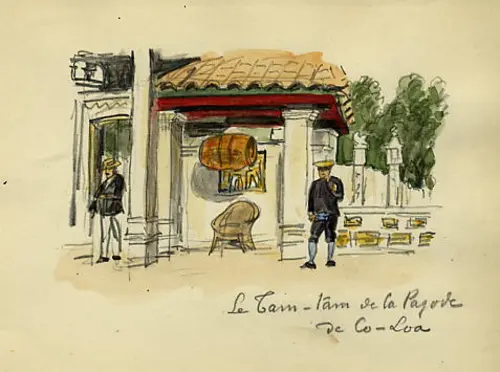 Le Tam-tam de la Pagode
de Co-Loa